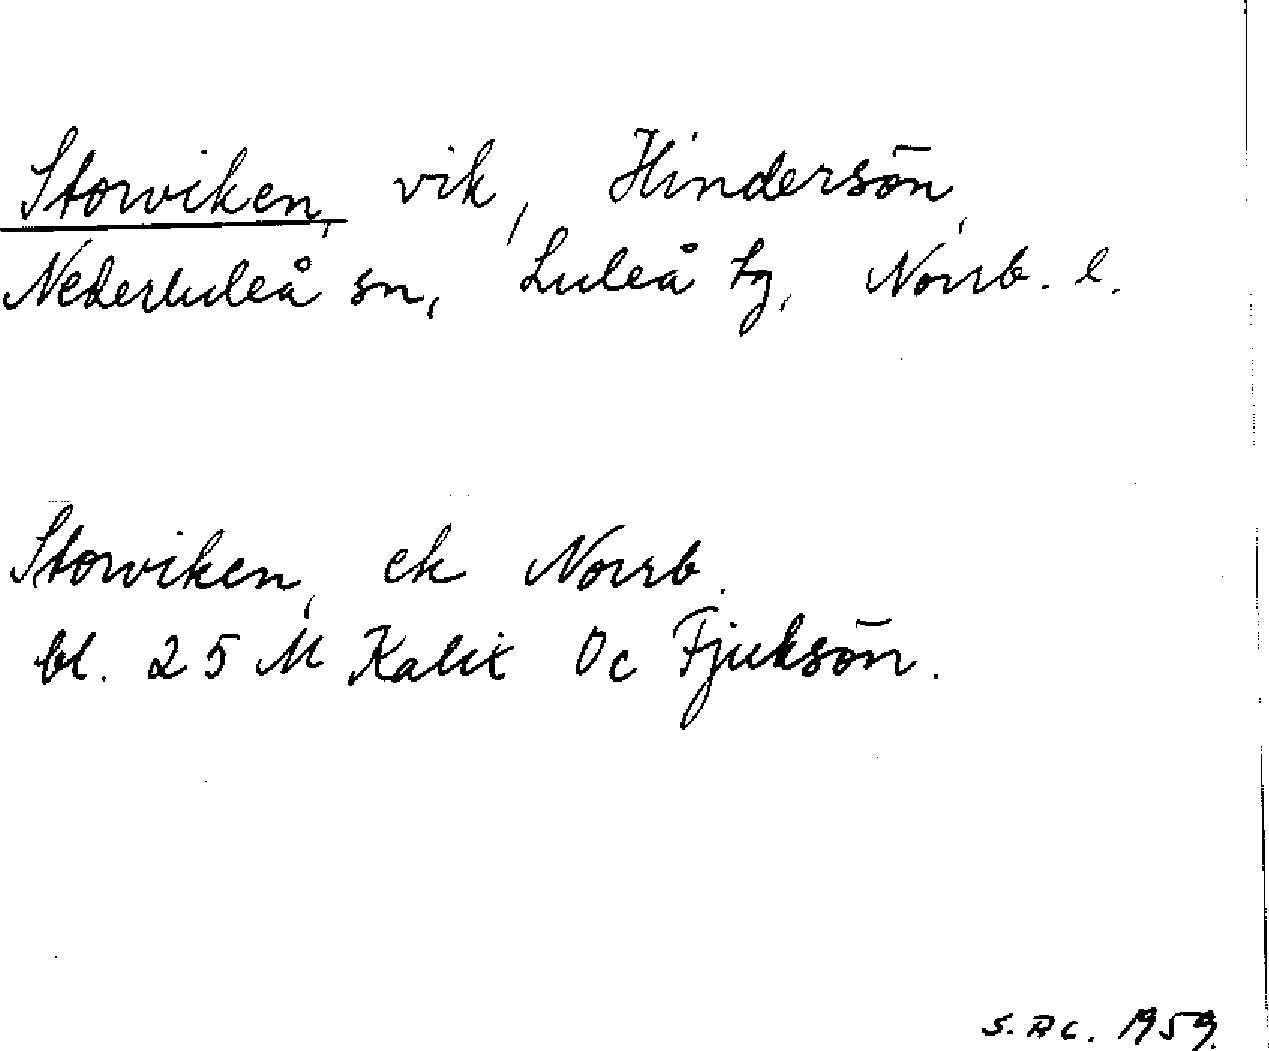 Storviken, vik, Hindersön,
Nederluleå sn, Luleå tg, Norrb. l.
Storviken, ek Norrb.
bl. 25 M Kalix Öc Fjuksön.
S. R C. 1959.